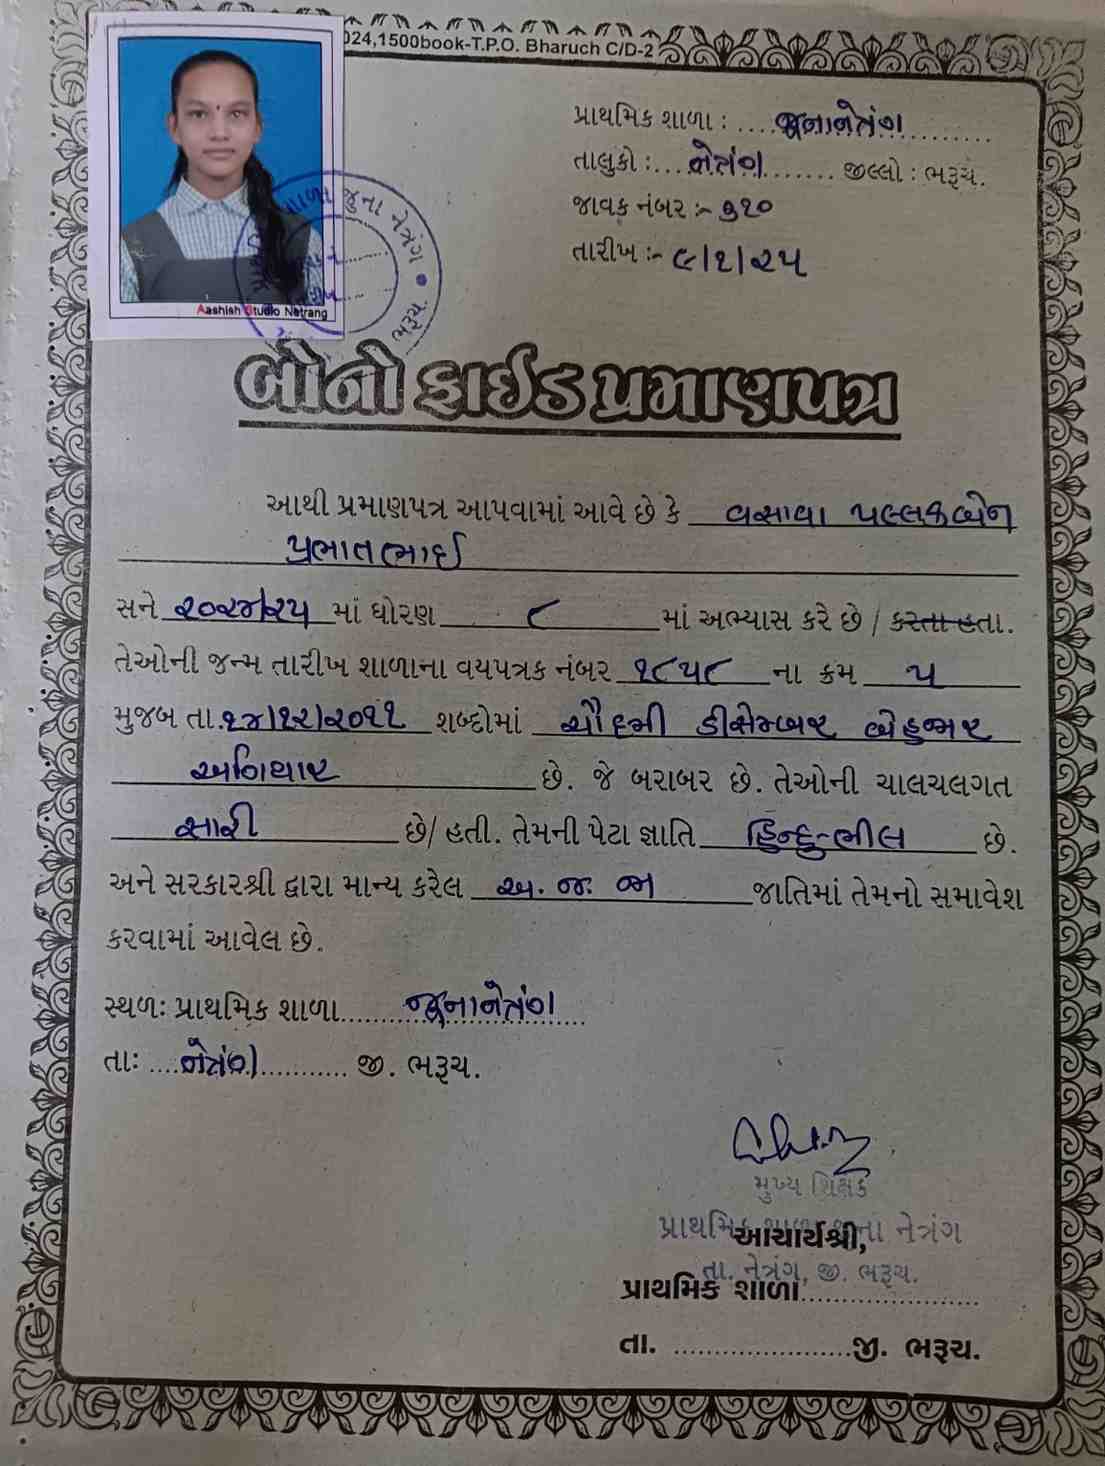 024,1500book-T.P.O. Bharuch C/D-2
પ્રાથમિક શાળા : ....જુનાનેત્રંગ............
તાલુકો :....નેત્રંગ....... જીલ્લો : ભરૂચ.
જાવક નંબર :- ૩૨૦
તારીખ :- ૯/૧/૨૫
શાળા જુના નેત્રંગ
ભરૂચ
Aashish Studio Netrang
બોનોફાઈડ પ્રમાણપત્ર
આથી પ્રમાણપત્ર આપવામાં આવે છે કે વસાવા પલ્લકબેન
પ્રભાતભાઈ
સને ૨૦૨૪/૨૫ માં ધોરણ ૮ માં અભ્યાસ કરે છે / કરતા હતા.
તેઓની જન્મ તારીખ શાળાના વયપત્રક નંબર ૧૮૫૮ ના ક્રમ ૫
મુજબ તા.૧૪/૧૨/૨૦૧૧ શબ્દોમાં ચૌદમી ડીસેમ્બર બેહજાર
અગિયાર છે. જે બરાબર છે. તેઓની ચાલચલગત
સારી છે/ હતી. તેમની પેટા જ્ઞાતિ હિન્દુ-ભીલ છે.
અને સરકારશ્રી દ્વારા માન્ય કરેલ અ. જ. જા જાતિમાં તેમનો સમાવેશ
કરવામાં આવેલ છે.
સ્થળ: પ્રાથમિક શાળા.....જુનાનેત્રંગ....
તા: ....નેત્રંગ........... જી. ભરૂચ.
મુખ્ય શિક્ષક
પ્રાથમિક શાળા જુના નેત્રંગ
આચાર્યશ્રી,
તા. નેત્રંગ, જી. ભરૂચ.
પ્રાથમિક શાળા.......................
તા. .......................જી. ભરૂચ.